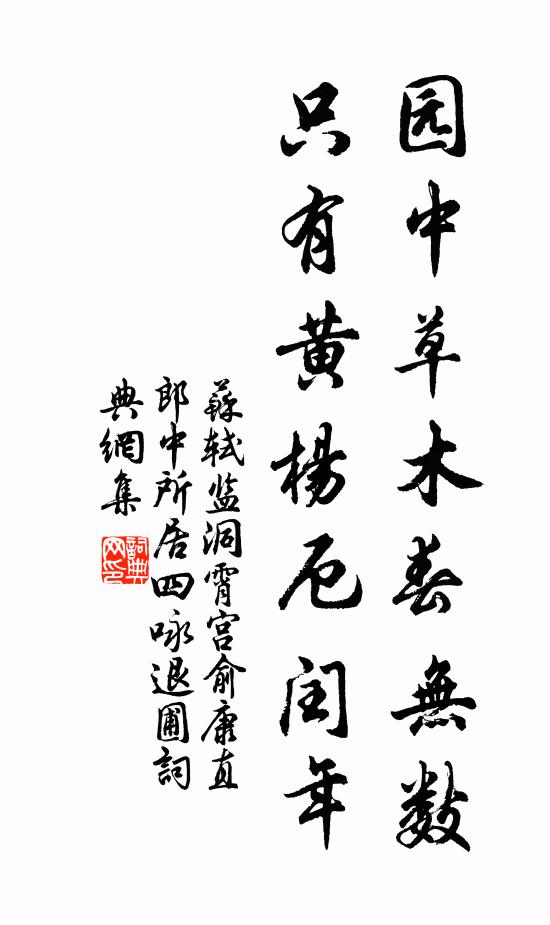 园中草木春無数
只有黄楊厄闰年
蘇轼监洞霄宫俞康直
郎中所居四咏退圃詞
典網集
詞典网印